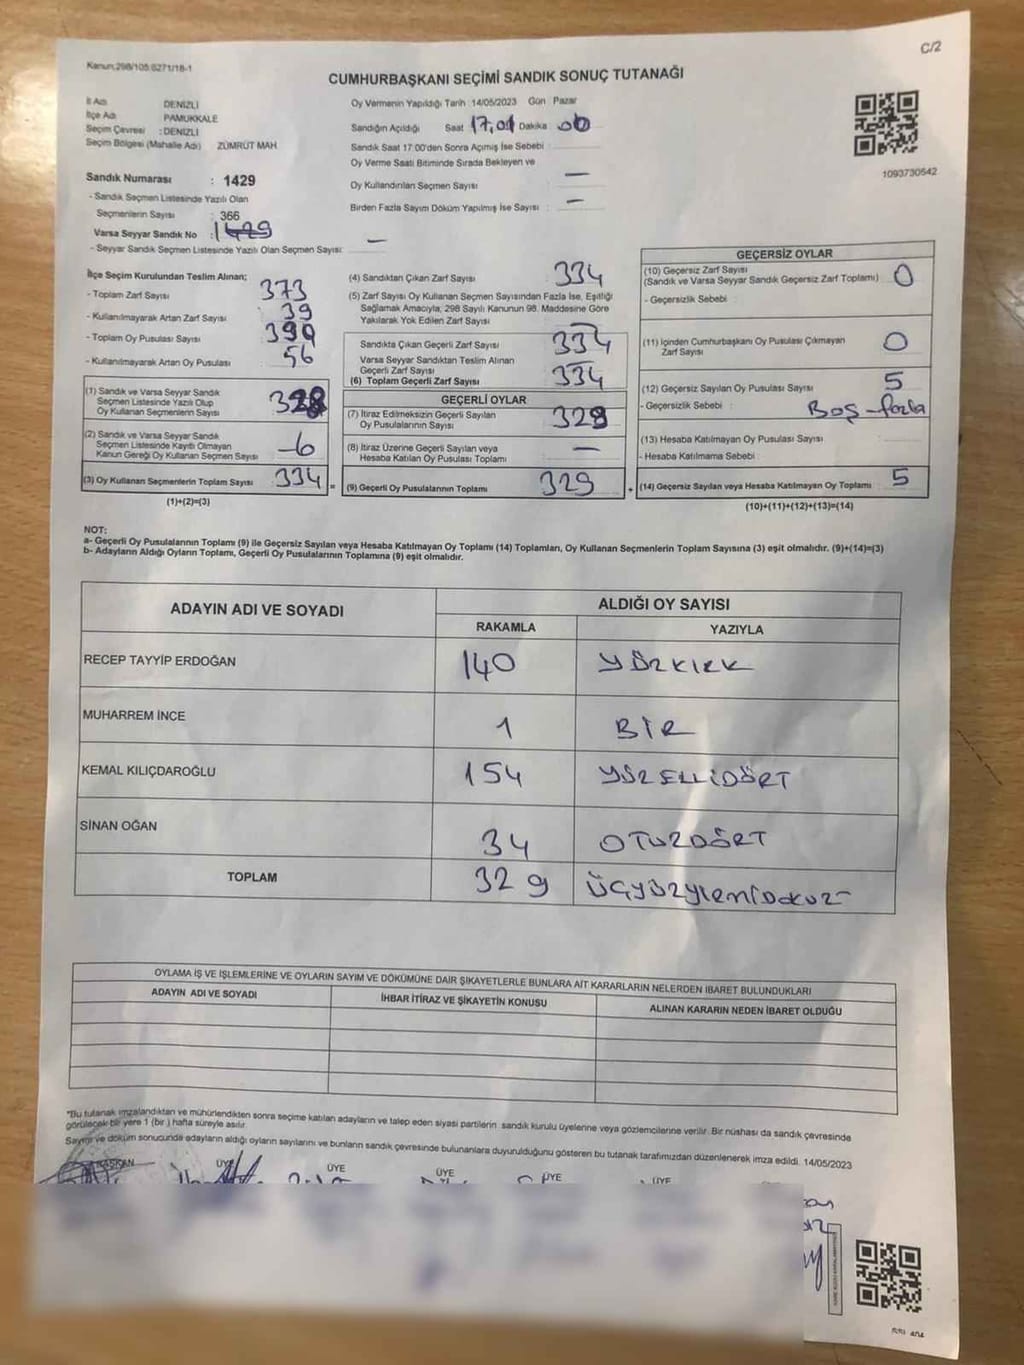 C/2
Kanun:298/105.6271/18-1
CUMHURBAŞKANI SEÇİMİ SANDIK SONUÇ TUTANAĞI
İl Adı DENİZLİ
İlçe Adı PAMUKKALE
Seçim Çevresi : DENİZLİ
Seçim Bölgesi (Mahalle Adı) ZÜMRÜT MAH
Sandık Numarası : 1429
- Sandık Seçmen Listesinde Yazılı Olan
Seçmenlerin Sayısı : 366
Varsa Seyyar Sandık No : 1429
- Seyyar Sandık Seçmen Listesinde Yazılı Olan Seçmen Sayısı: —
Oy Vermenin Yapıldığı Tarih 14/05/2023 Gün Pazar
Sandığın Açıldığı Saat 17,01 Dakika
Sandık Saat 17:00'den Sonra Açımış İse Sebebi :
Oy Verme Saati Bitiminde Sırada Bekleyen ve
Oy Kullandırılan Seçmen Sayısı : —
Birden Fazla Sayım Döküm Yapılmış İse Sayısı : —
1093730542
İlçe Seçim Kurulundan Teslim Alınan;
- Toplam Zarf Sayısı 373
- Kullanılmayarak Artan Zarf Sayısı 39
- Toplam Oy Pusulası Sayısı 390
- Kullanılmayarak Artan Oy Pusulası 56
(1) Sandık ve Varsa Seyyar Sandık
Seçmen Listesinde Yazılı Olup
Oy Kullanan Seçmenlerin Sayısı 328
(2) Sandık ve Varsa Seyyar Sandık
Seçmen Listesinde Kayıtlı Olmayan
Kanun Gereği Oy Kullanan Seçmen Sayısı 6
(3) Oy Kullanan Seçmenlerin Toplam Sayısı 334 =
(1)+(2)=(3)
(4) Sandıktan Çıkan Zarf Sayısı 334
(5) Zarf Sayısı Oy Kullanan Seçmen Sayısından Fazla İse, Eşitliği
Sağlamak Amacıyla, 298 Sayılı Kanunun 98. Maddesine Göre
Yakılarak Yok Edilen Zarf Sayısı : —
Sandıkta Çıkan Geçerli Zarf Sayısı 334
Varsa Seyyar Sandıktan Teslim Alınan
Geçerli Zarf Sayısı —
(6) Toplam Geçerli Zarf Sayısı 334
GEÇERLİ OYLAR
(7) İtiraz Edilmeksizin Geçerli Sayılan
Oy Pusulalarının Sayısı 329
(8) İtiraz Üzerine Geçerli Sayılan veya
Hesaba Katılan Oy Pusulası Toplamı —
(9) Geçerli Oy Pusulalarının Toplamı 329 +
GEÇERSİZ OYLAR
(10) Geçersiz Zarf Sayısı
(Sandık ve Varsa Seyyar Sandık Geçersiz Zarf Toplamı) 0
- Geçersizlik Sebebi :
(11) İçinden Cumhurbaşkanı Oy Pusulası Çıkmayan
Zarf Sayısı 0
(12) Geçersiz Sayılan Oy Pusulası Sayısı 5
- Geçersizlik Sebebi : Boş-fazla
(13) Hesaba Katılmayan Oy Pusulası Sayısı
- Hesaba Katılmama Sebebi :
(14) Geçersiz Sayılan veya Hesaba Katılmayan Oy Toplamı 5
(10)+(11)+(12)+(13)=(14)
NOT:
a- Geçerli Oy Pusulalarının Toplamı (9) ile Geçersiz Sayılan veya Hesaba Katılmayan Oy Toplamı (14) Toplamları, Oy Kullanan Seçmenlerin Toplam Sayısına (3) eşit olmalıdır. (9)+(14)=(3)
b- Adayların Aldığı Oyların Toplamı, Geçerli Oy Pusulalarının Toplamına (9) eşit olmalıdır.
ADAYIN ADI VE SOYADI
ALDIĞI OY SAYISI
RAKAMLA YAZIYLA
RECEP TAYYİP ERDOĞAN 140 YÜZKIRK
MUHARREM İNCE 1 BİR
KEMAL KILIÇDAROĞLU 154 YÜZELLİDÖRT
SİNAN OĞAN 34 OTUZDÖRT
TOPLAM 329
OYLAMA İŞ VE İŞLEMLERİNE VE OYLARIN SAYIM VE DÖKÜMÜNE DAİR ŞİKAYETLERLE BUNLARA AİT KARARLARIN NELERDEN İBARET BULUNDUKLARI
ADAYIN ADI VE SOYADI İHBAR İTİRAZ VE ŞİKAYETİN KONUSU ALINAN KARARIN NEDEN İBARET OLDUĞU
"Bu tutanak imzalandıktan ve mühürlendikten sonra seçime katılan adayların ve talep eden siyasi partilerin sandık kurulu üyelerine veya gözlemcilerine verilir. Bir nüshası da sandık çevresinde
görülecek bir yere 1 (bir) hafta süreyle asılır.
Sayım ve döküm sonucunda adayların aldığı oyların sayılarını ve bunların sandık çevresinde bulunanlara duyurulduğunu gösteren bu tutanak tarafımızdan düzenlenerek imza edildi. 14/05/2023
BAŞKAN ÜYE ÜYE ÜYE ÜYE ÜYE